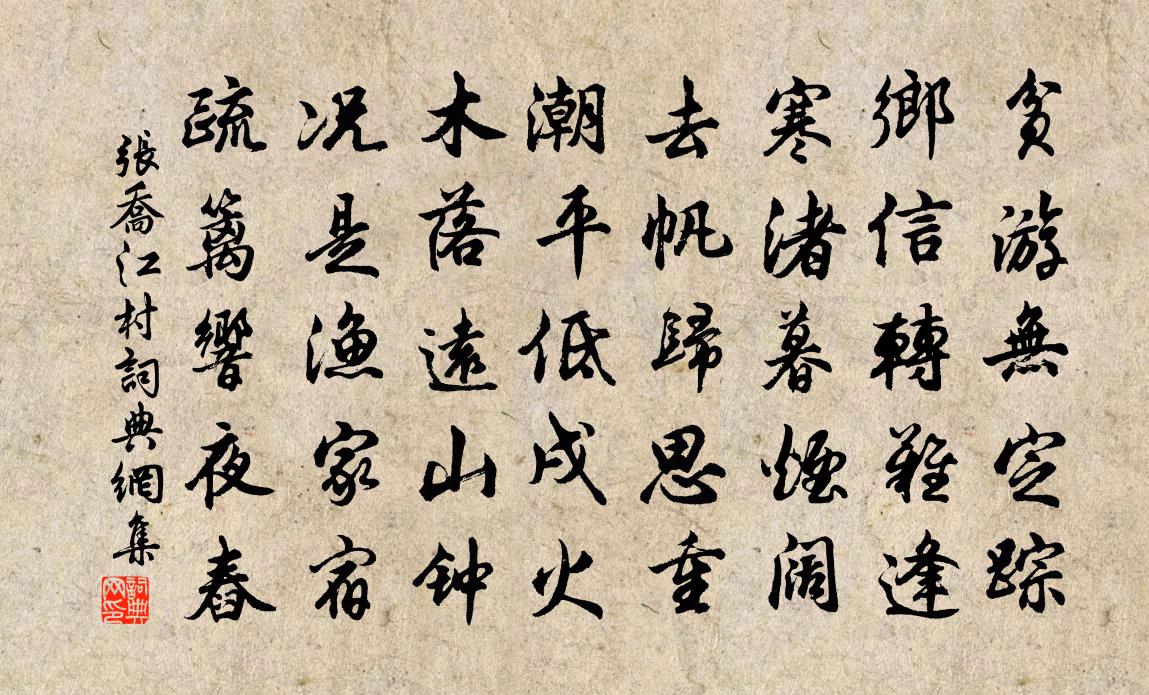 貧游無定踪
鄉信轉難逢
寒渚暮煙闊
去帆歸思重
潮平低戍火
木落遠山钟
况是漁家宿
疏篱響夜舂
張喬江村詞典網集
詞典网印